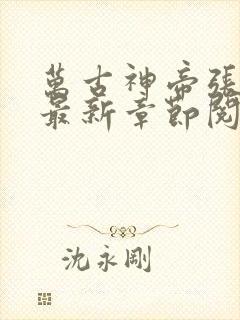 萬古神帝張
最新章節閱
沈永剛